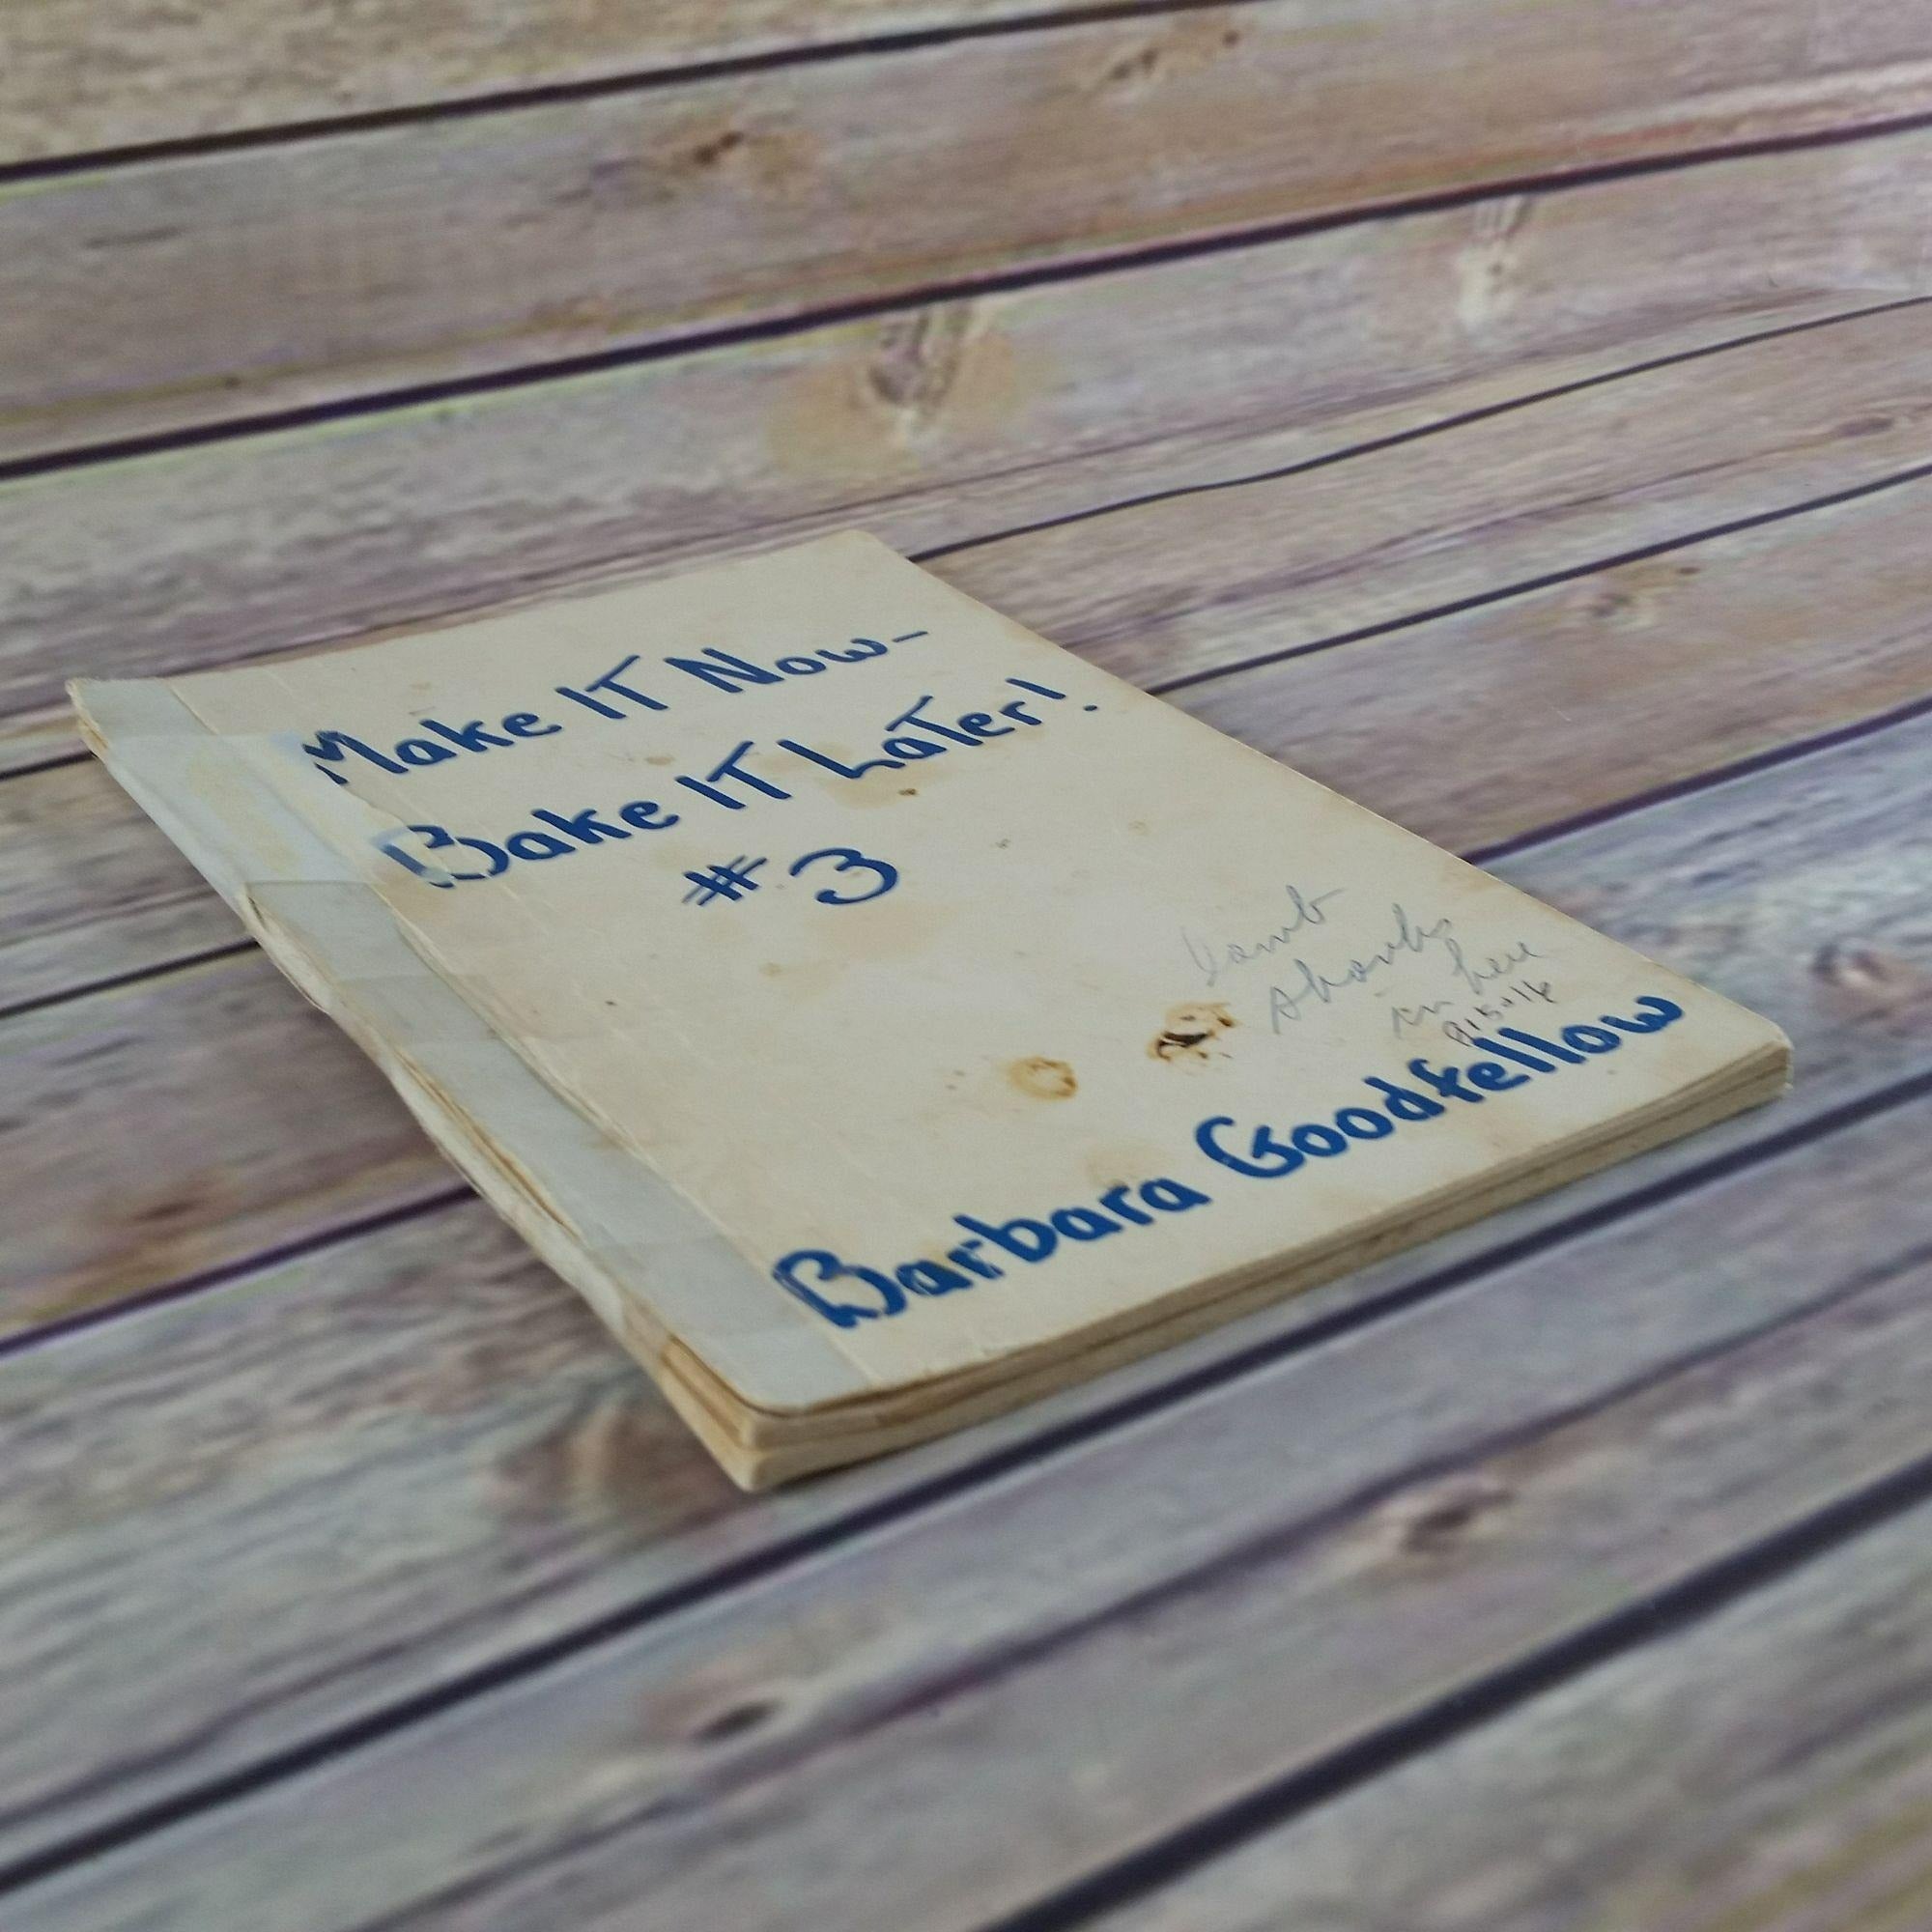 Make IT Now-
Bake IT Later!
# 3
Lamb
shanks
in here
P15+16
Barbara Goodfellow